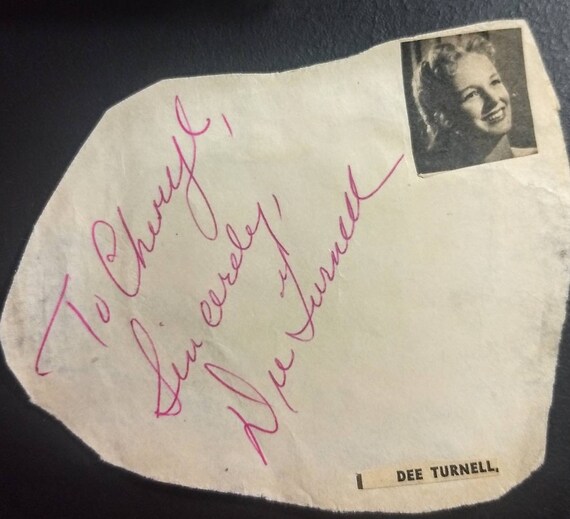 To Cheryl,
Sincerely,
Dee Turnell
DEE TURNELL,